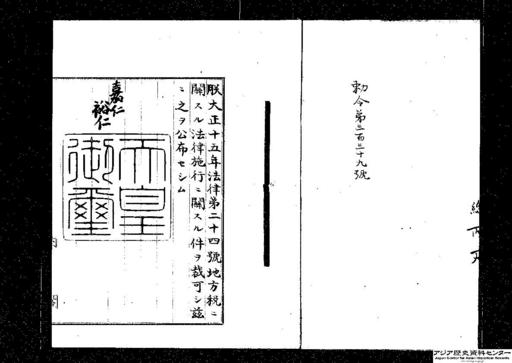 勅令第三百三十九號
朕大正十五年法律第二十四號地方税ニ
關スル法律施行ニ關スル件ヲ裁可シ茲
ニ之ヲ公布セシム
嘉仁
裕仁
天皇
御璽
内閣
アジア歴史資料センター
Japan Center for Asian Historical Records